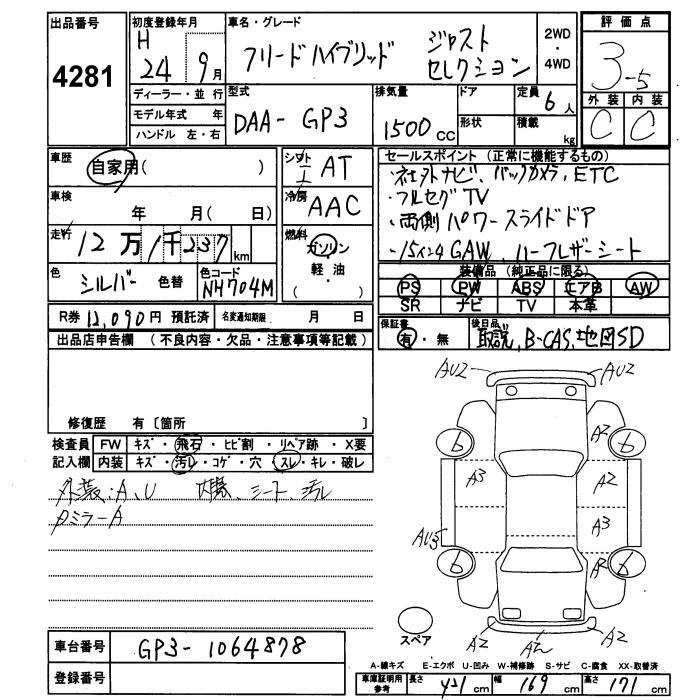 出品番号
4281
初度登録年月
H
24 9月
ディーラー・並 行
モデル年式 年
ハンドル 左・右
車名・グレード
フリードハイブリッド ジャスト
セレクション
2WD
4WD
評価点
3-5
外装 内装
C C
型式
DAA- GP3
排気量
1500cc
ドア
形状
定員 6人
積載 kg
車歴
自家用( )
車検
年 月( 日)
走行 12万1千237km
色 シルバー 色替
色コード NH704M
シフト
I AT
冷房
AAC
燃料
ガソリン
軽・油
( )
セールスポイント (正常に機能するもの)
・社外ナビ、バックカメラ、ETC
・フルセグTV
・両側パワースライドドア
・15インチGAW、ハーフレザーシート
装備品 (純正品に限る)
PS PW ABS エアB AW
SR ナビ TV 本革
R券 12,090円 預託済
名変通知期限 月 日
保証書
有・無
後日品 取説、B-CAS、地図SD
出品店申告欄 (不良内容・欠品・注意事項等記載)
修復歴 有〔箇所 〕
検査員 FW キズ・飛石・ヒビ割・リペア跡・X要
記入欄 内装 キズ・汚レ・コゲ・穴・スレ・キレ・破レ
外装:A、U 内装、シート、汚レ
ミラーA
AU2 AU2
b A2 b
A3 A2
A3
AU3
b A2 b
スペア
A2 A2 A2
車台番号 GP3-1064878
登録番号
A-線キズ E-エクボ U-凹み W-補修跡 S-サビ C-腐食 XX-取替済
車庫証明用
参考
長さ 421cm 幅 169cm 高さ 171cm